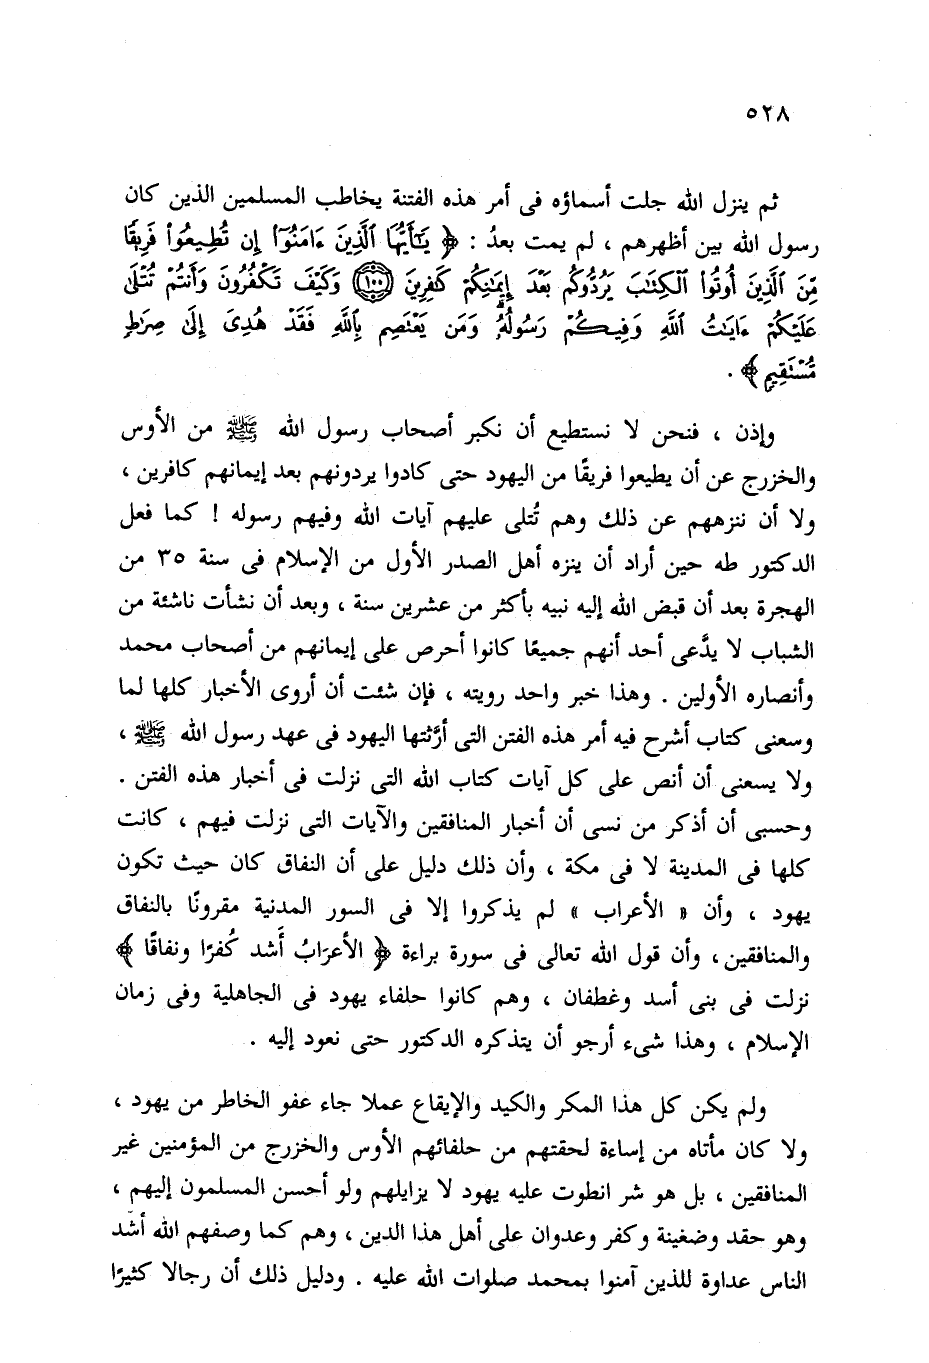 ٥٢٨
ثم ينزل الله جلت أسماؤه فى أمر هذه الفتنة يخاطب المسلمين الذين كان
رسول الله بين أظهرهم ، لم يمت بعدُ : ﴿ يَـٰٓأَيُّهَا ٱلَّذِينَ ءَامَنُوٓا۟ إِن تُطِيعُوا۟ فَرِيقًا
مِّنَ ٱلَّذِينَ أُوتُوا۟ ٱلْكِتَـٰبَ يَرُدُّوكُم بَعْدَ إِيمَـٰنِكُمْ كَـٰفِرِينَ ﴿١٠٠﴾ وَكَيْفَ تَكْفُرُونَ وَأَنتُمْ تُتْلَىٰ
عَلَيْكُمْ ءَايَـٰتُ ٱللَّهِ وَفِيكُمْ رَسُولُهُۥ وَمَن يَعْتَصِم بِٱللَّهِ فَقَدْ هُدِىَ إِلَىٰ صِرَٰطٍ
مُّسْتَقِيمٍ ﴾ .
وإذن ، فنحن لا نستطيع أن نكبر أصحاب رسول الله ﷺ من الأوس
والخزرج عن أن يطيعوا فريقًا من اليهود حتى كادوا يردونهم بعد إيمانهم كافرين ،
ولا أن ننزههم عن ذلك وهم تُتلى عليهم آيات الله وفيهم رسوله ! كما فعل
الدكتور طه حين أراد أن ينزه أهل الصدر الأول من الإسلام فى سنة ٣٥ من
الهجرة بعد أن قبض الله إليه نبيه بأكثر من عشرين سنة ، وبعد أن نشأت ناشئة من
الشباب لا يدَّعى أحد أنهم جميعًا كانوا أحرص على إيمانهم من أصحاب محمد
وأنصاره الأولين . وهذا خبر واحد رويته ، فإن شئت أن أروى الأخبار كلها لما
وسعنى كتاب أشرح فيه أمر هذه الفتن التى أرَّثتها اليهود فى عهد رسول الله ﷺ ،
ولا يسعنى أن أنص على كل آيات كتاب الله التى نزلت فى أخبار هذه الفتن .
وحسبى أن أذكر من نسى أن أخبار المنافقين والآيات التى نزلت فيهم ، كانت
كلها فى المدينة لا فى مكة ، وأن ذلك دليل على أن النفاق كان حيث تكون
يهود ، وأن « الأعراب » لم يذكروا إلا فى السور المدنية مقرونًا بالنفاق
والمنافقين ، وأن قول الله تعالى فى سورة براءة ﴿ الأعرَابُ أَشد كُفرًا ونفاقًا ﴾
نزلت فى بنى أسد وغطفان ، وهم كانوا حلفاء يهود فى الجاهلية وفى زمان
الإسلام ، وهذا شىء أرجو أن يتذكره الدكتور حتى نعود إليه .
ولم يكن كل هذا المكر والكيد والإيقاع عملا جاء عفو الخاطر من يهود ،
ولا كان مأتاه من إساءة لحقتهم من حلفائهم الأوس والخزرج من المؤمنين غير
المنافقين ، بل هو شر انطوت عليه يهود لا يزايلهم ولو أحسن المسلمون إليهم ،
وهو حقد وضغينة وكفر وعدوان على أهل هذا الدين ، وهم كما وصفهم الله أشد
الناس عداوة للذين آمنوا بمحمد صلوات الله عليه . ودليل ذلك أن رجالا كثيرًا